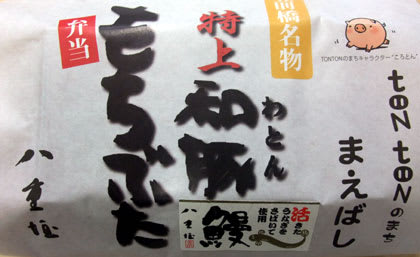 前橋名物
特上
和豚
わとん
もちぶた
弁当
八重垣
TONTONのまちキャラクター"ころとん"
tontonのまち
まえばし
活きた
うなぎを
さばいて
使用
鰻
八重垣